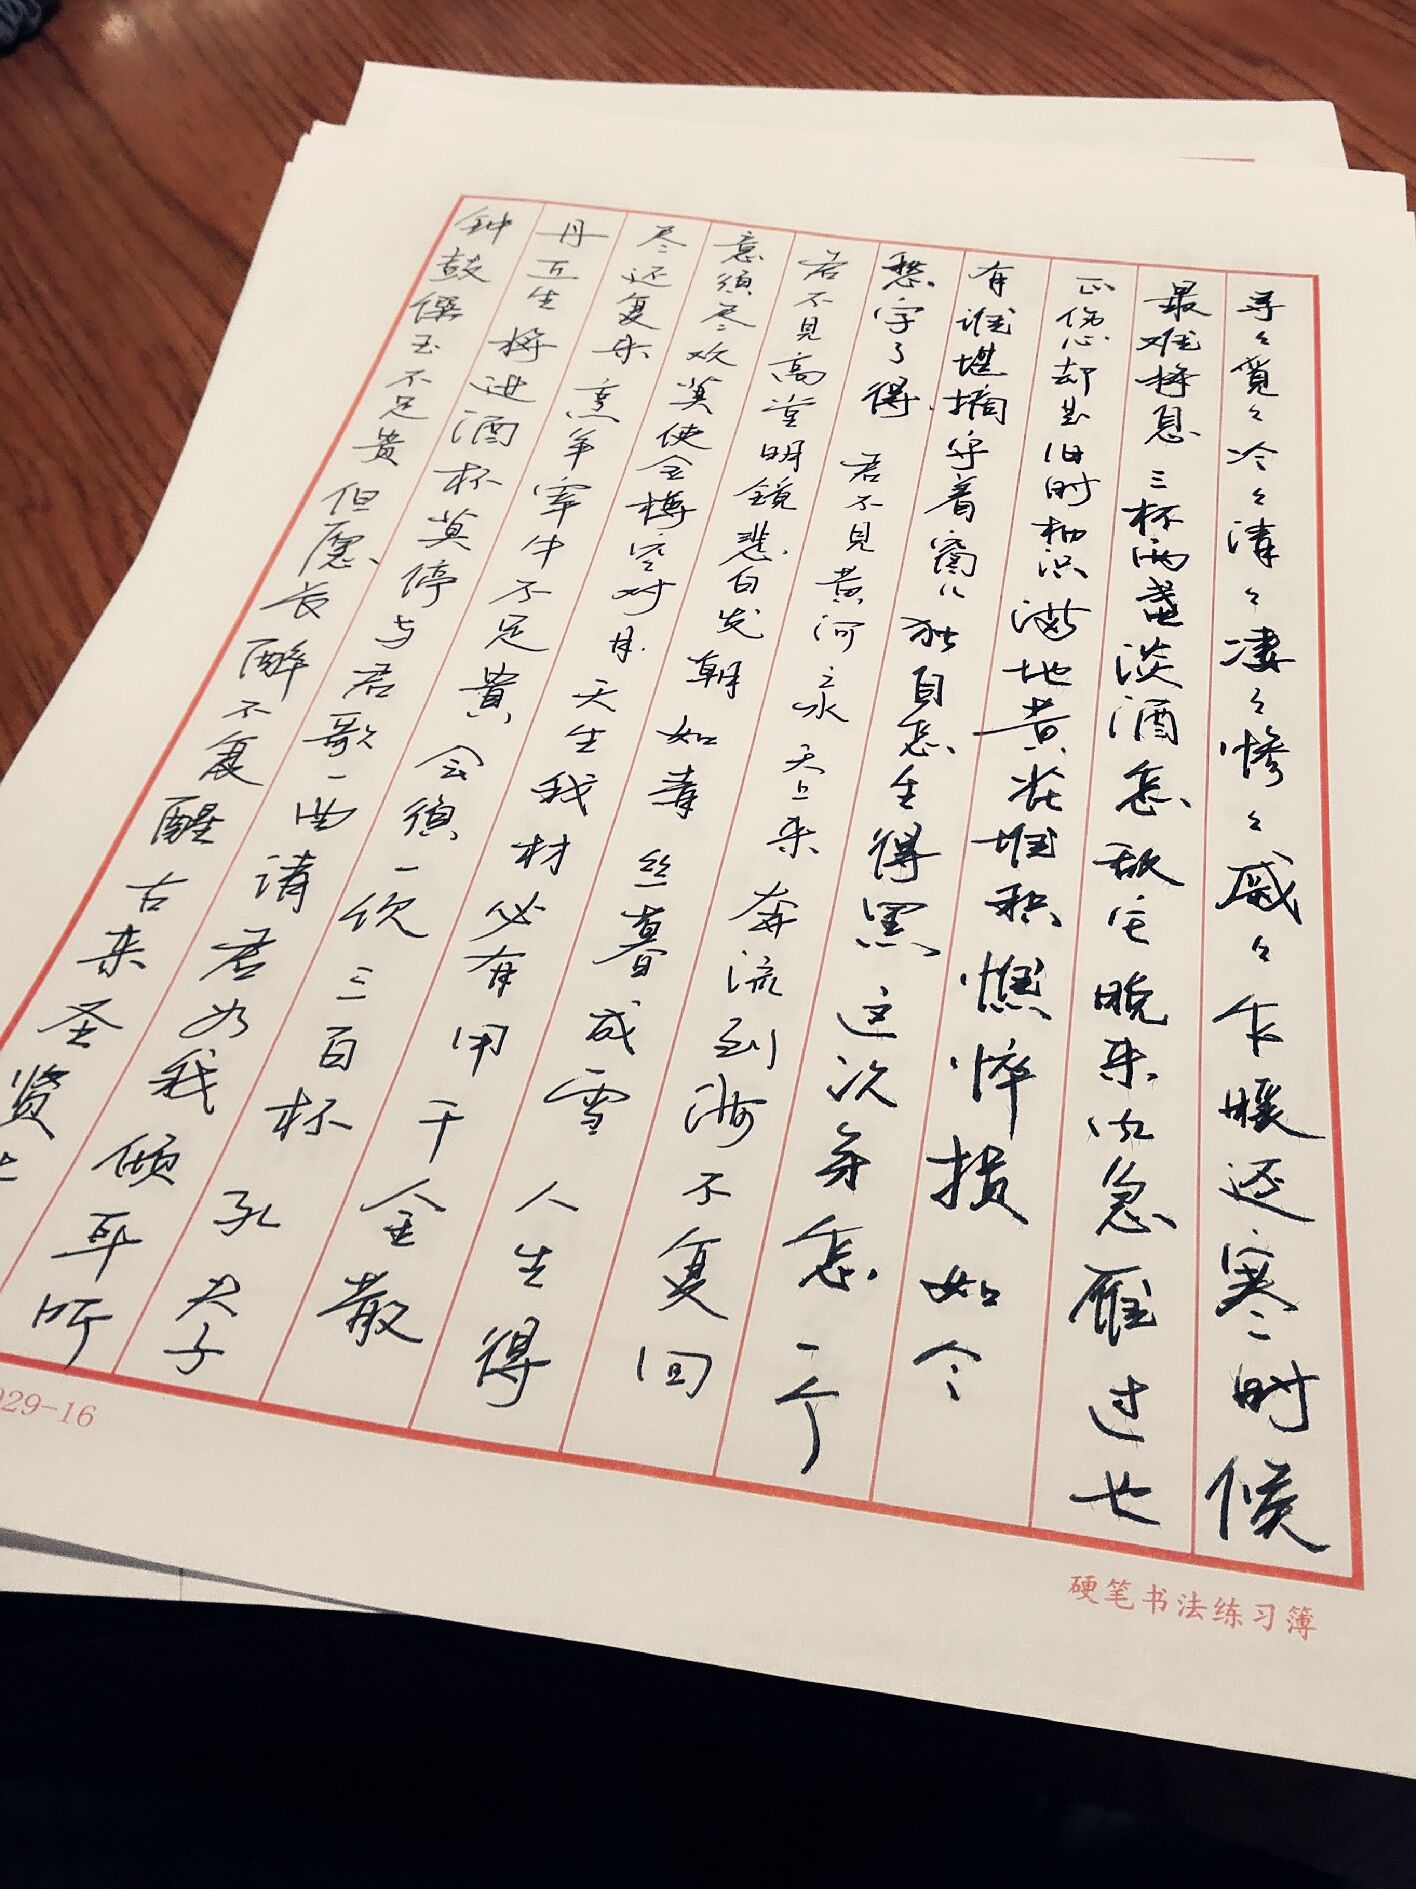 寻々觅々冷々清々凄々惨々戚々乍暖还寒时候
最难将息三杯两盏淡酒怎敌它晚来风急雁过也
正伤心却是旧时相识满地黄花堆积憔悴损如今
有谁堪摘守着窗儿独自怎生得黑这次第怎一个
愁字了得 君不见黄河之水天上来奔流到海不复回
君不见高堂明镜悲白发朝如青丝暮成雪人生得
意须尽欢莫使金樽空对月天生我材必有用千金散
尽还复来烹羊宰牛不足貴会须一饮三百杯孔夫子
丹丘生将进酒杯莫停与君歌一曲请君为我倾耳听
钟鼓馔玉不足贵但愿长醉不复醒古来圣贤
硬笔书法练习簿
029-16